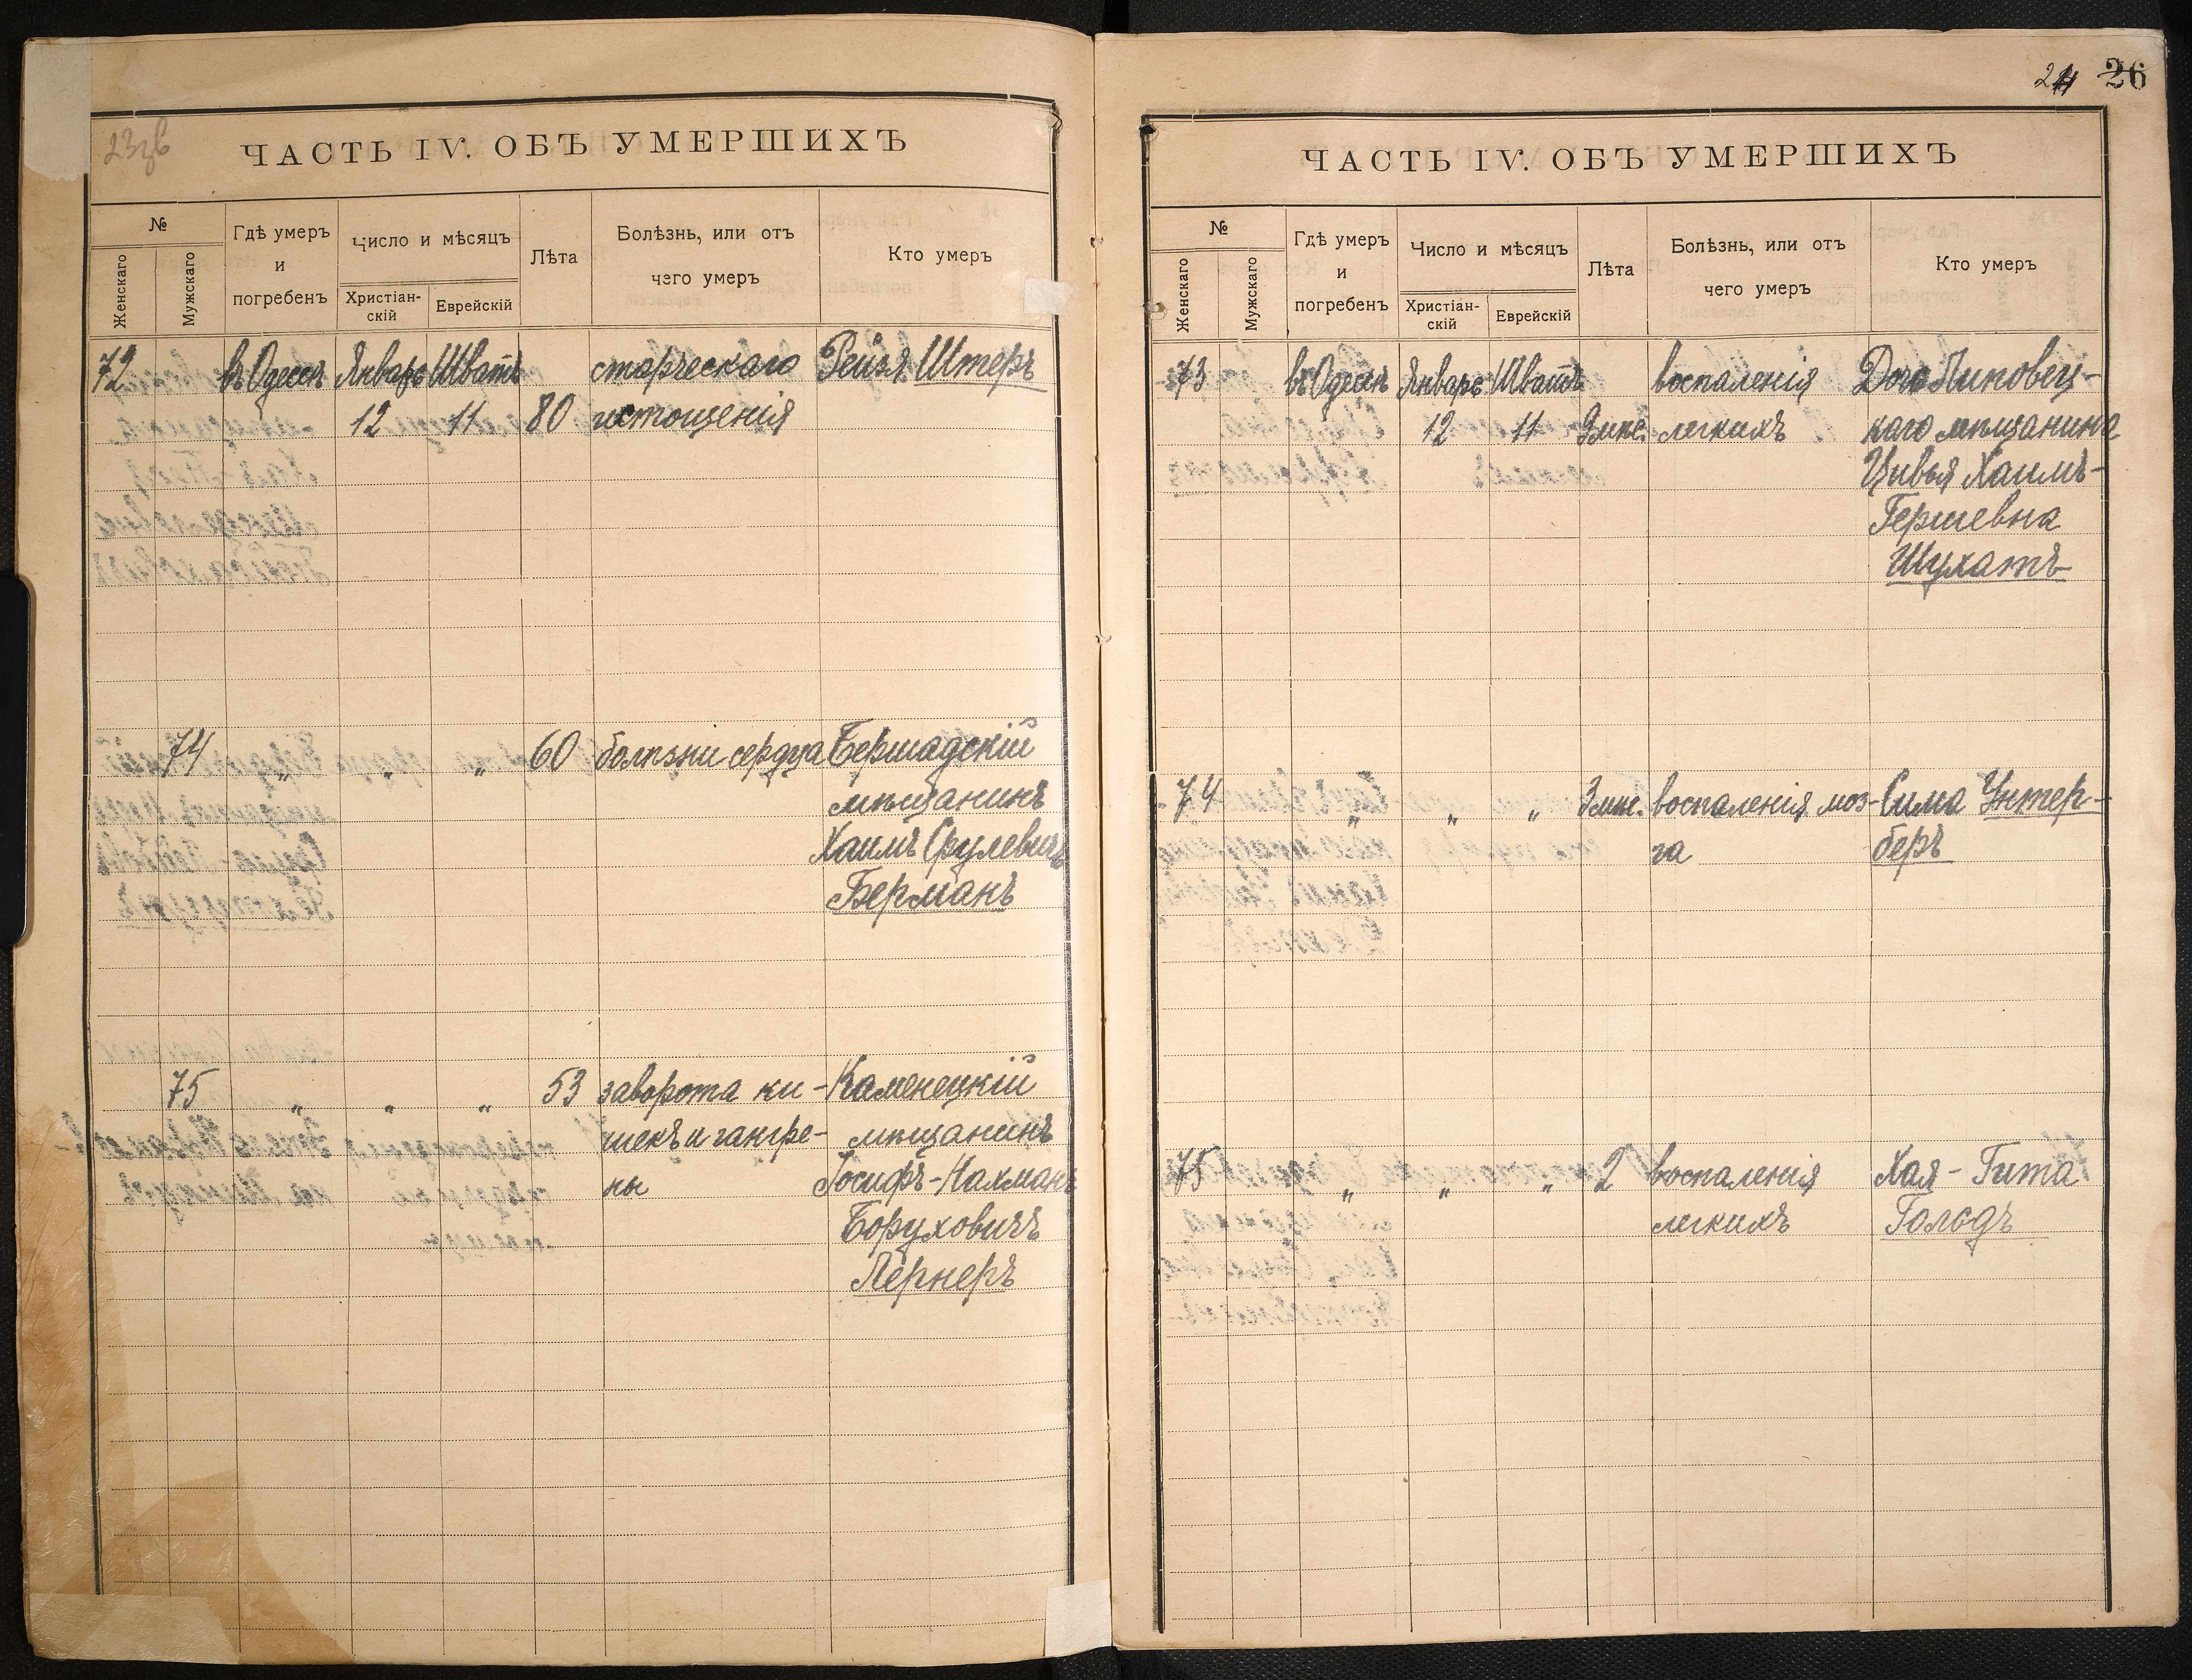 23зв
ЧАСТЬ IV. ОБЪ УМЕРШИХЪ
№
Женскаго
Мужскаго
Гдѣ умеръ
и
погребенъ
Число и мѣсяцъ
Христіан-
скій
Еврейскій
Лѣта
Болѣзнь, или отъ
чего умеръ
Кто умеръ
72 въ Одессѣ Январь Шватъ старческаго Рейзя Штеръ
12 11 80 истощенія
74 " " " 60 болѣзни сердца Бершадскій
мѣщанинъ
Хаимъ Срулевичъ
Берманъ
75 " " " 53 заворота ки- Каменецкій
шекъ и гангре- мѣщанинъ
ны Іосифъ-Нахманъ
Боруховичъ
Лернеръ
24 26
ЧАСТЬ IV. ОБЪ УМЕРШИХЪ
№
Женскаго
Мужскаго
Гдѣ умеръ
и
погребенъ
Число и мѣсяцъ
Христіан-
скій
Еврейскій
Лѣта
Болѣзнь, или отъ
чего умеръ
Кто умеръ
73 въ Одессѣ Январь Шватъ воспаленія Дочь Липовец-
12 11 9 мѣс. легкихъ каго мѣщанина
Цивья Хаимъ-
Гершевна
Шухатъ
74 " " " 3 мѣс. воспаленія моз- Сима Унтер-
га беръ
75 " " " 2 воспаленія Хая-Гита
легкихъ Гольдъ